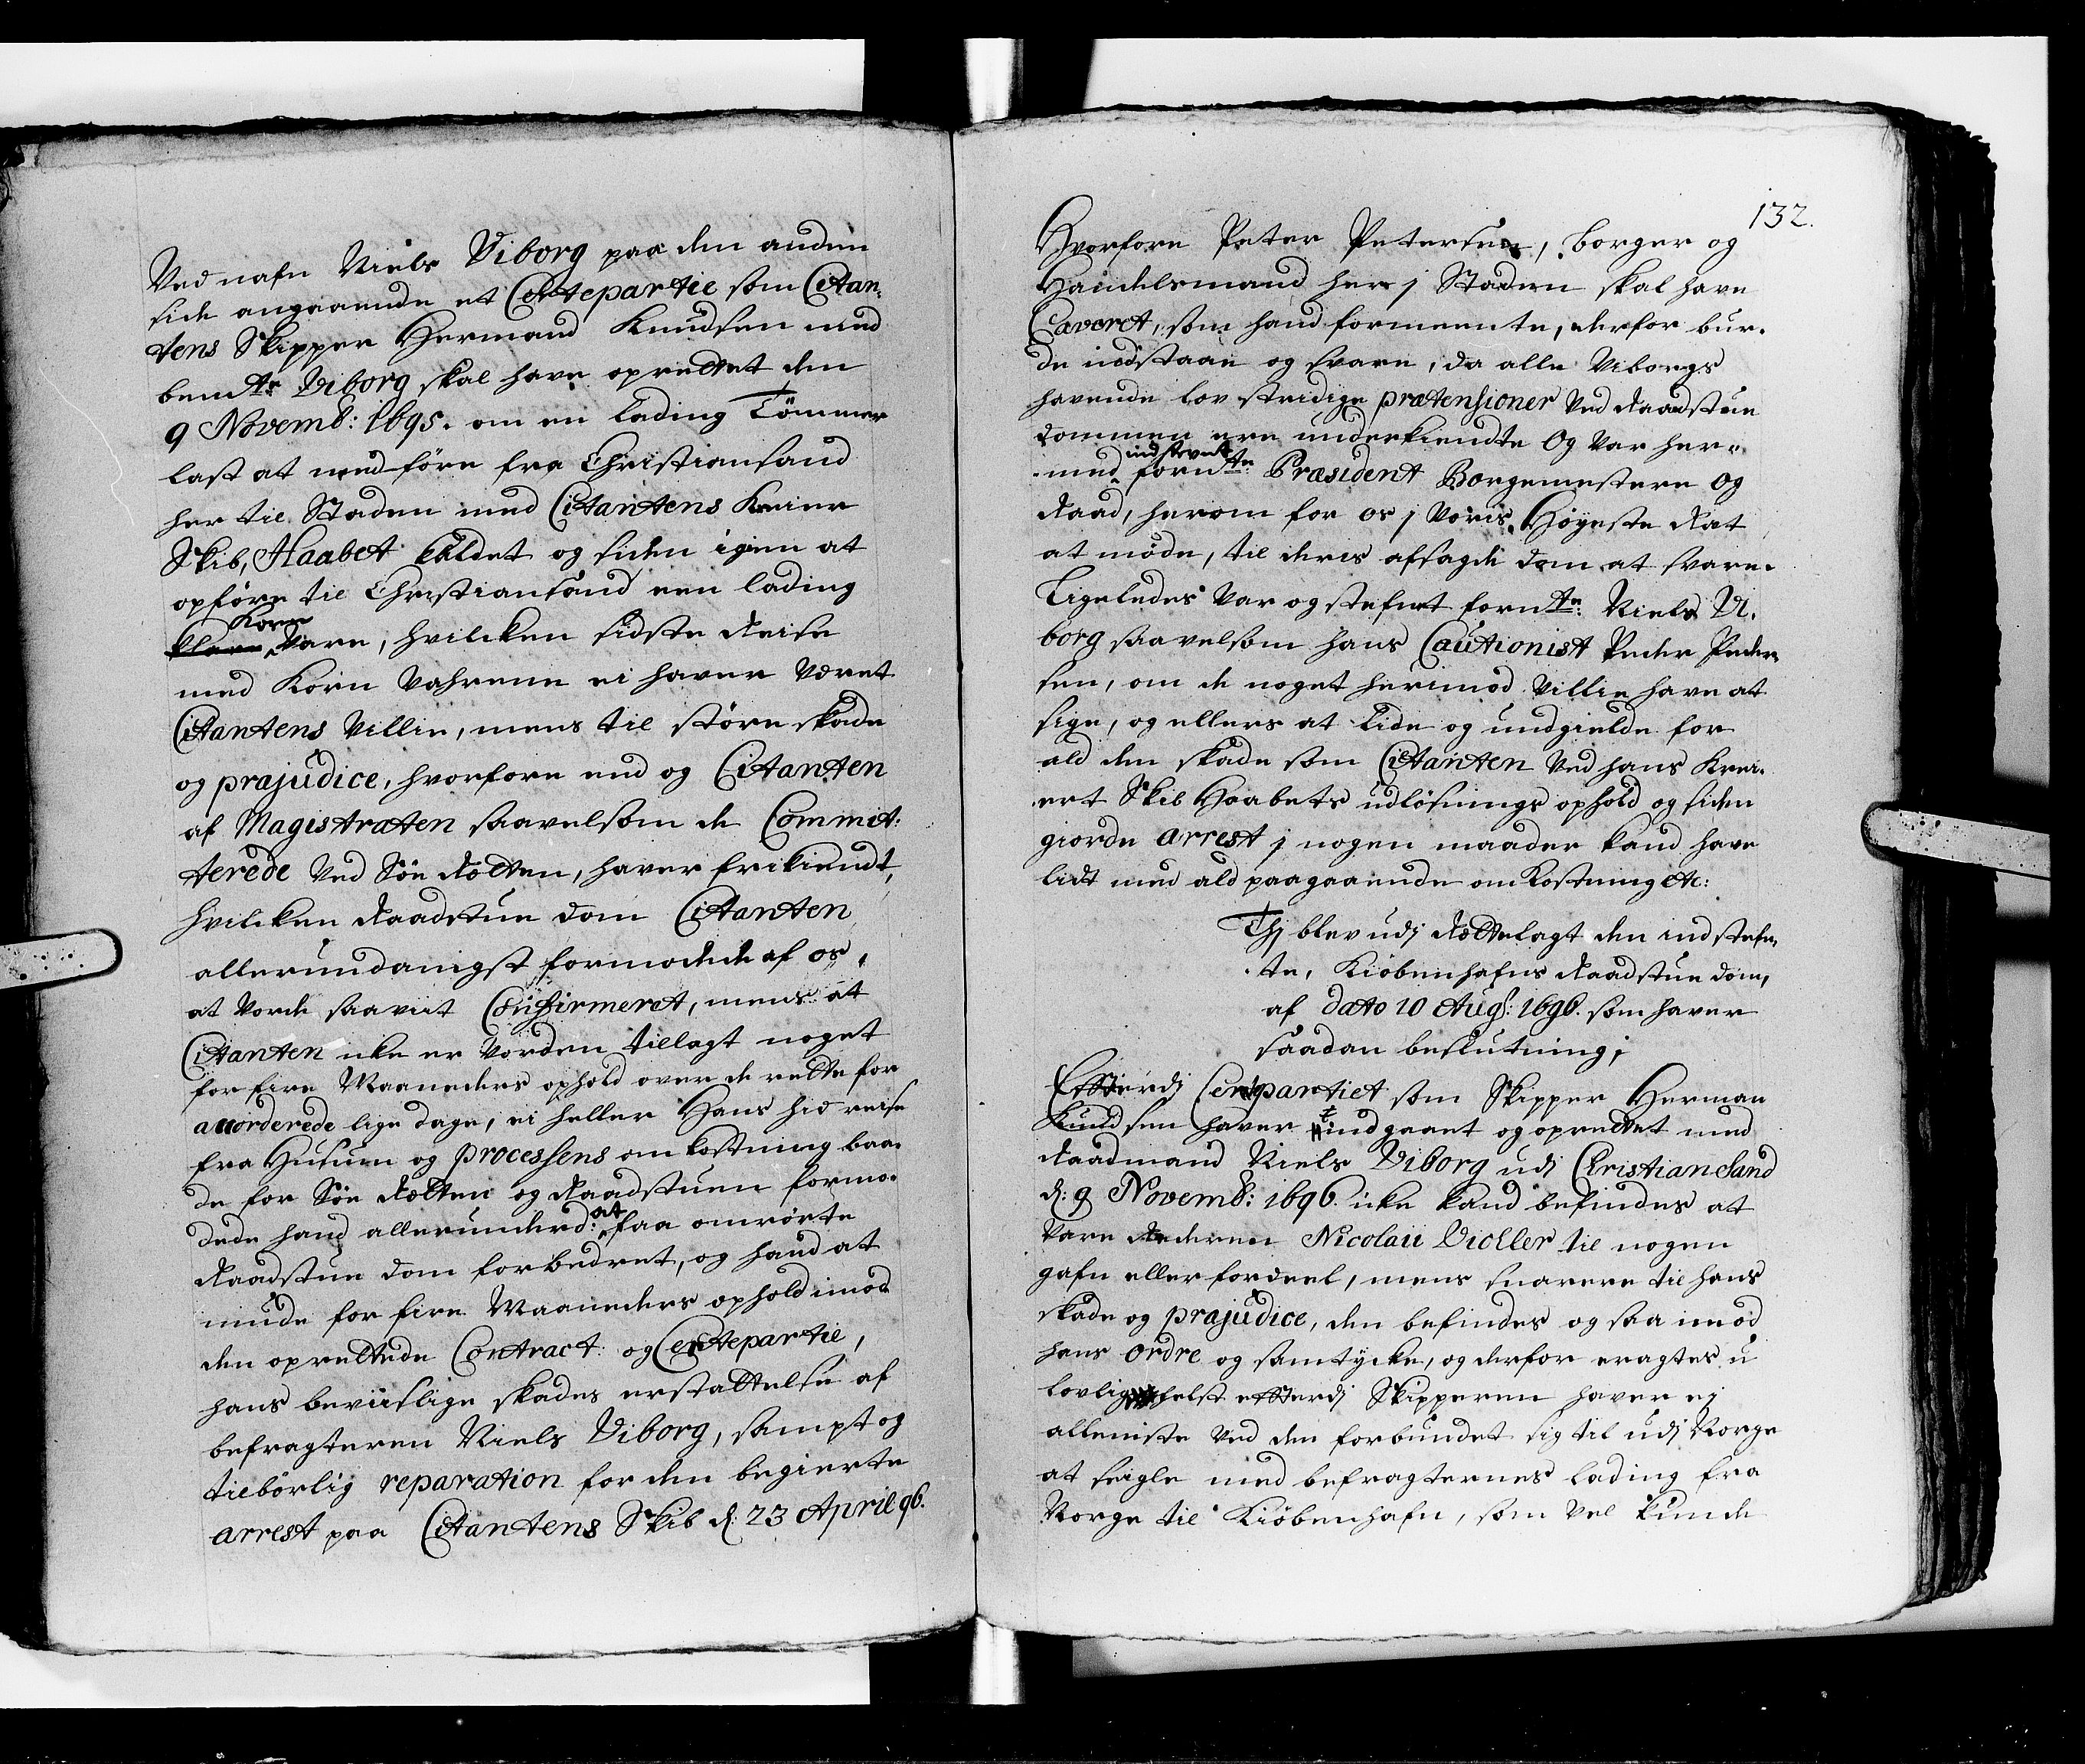 Ved nafn Niels Viborg paa den anden
side angaaende et Certepartie som Citan-
tens Skipper Hermand Knudsen med
bemte: Viborg skal have oprettet den
9 Novemb: 1695. om en lading Tömmer
last at nedføre fra Christiansand
her til Staden med Citantens Kreier
Skib, Haabet kaldet og siden igien at
opføre til Christiansand een lading
Korn
Vare, hvilcken sidste Reise
med Korn Vahrene ei haver Været
Citantens Villie, mens til støre skade
og præjudice, hvorfore end og Citanten
af Magistraten saavelsom de Commit-
terede Ved Søe Retten, haver frikiendt,
hvilcken Raadstue dom Citanten
allerundanigst formodede af os,
at vorde saavit Confirmeret, mens at
Citanten icke er Vorden tillagt noget
for fire Maaneders ophold over de rette for
accorderede lige dage, ei heller Hans hid reise
fra Husum og processens omkostning baa-
de for Søe Retten og Raadstuen formo-
dede hand allerunderd: at faa omrørte
Raadstue dom forbedret, og hand at
niude for fire Maaneders ophold imod
den oprettede Contract og Certepartie,
hans beviislige skades erstattelse af
befragteren Niels Viborg, sampt og
tilbörlig reparation for den begierte
arrest paa Citantens Skib d: 23 April 96.
132.
Hvorfore Peter Petersen, borger og
Handelsmand her j Staden skal have
Caveret, som hand formeente, derfor bur-
de indstaae og svare, da alle Viborgs
havende lov stridige prætensioner Ved Raadstue
dommen ere underkiendte Og Var her-
indstevnt
med fornte: Præsident Borgemestere Og
Raad, herom for os j Voris Høyeste Ret
at møde, til deris afsagde dom at svare.
Ligeledes Var og stefnet fornte: Niels Vi-
borg saavelsom hans Cautionist Peder Peder-
sen, om de noget herimod Ville have at
sige, og ellers at lide og undgielde for
ald den skade som Citanten Ved hans Krei-
ert Skib Haabets udlösnings ophold og siden
giorde arrest j nogen maader kand have
lidt med ald paagaaende omkostning etc:
Thj blev udj Rettelagt den indstefn-
te, Kiöbenhafns Raadstue dom,
af dato 10 Aug: 1696. som haver
saadan beslutning;
Efterdj Certepartiet som Skipper Herman
Knudsen haver indgaaet og oprettet med
Raadmand Niels Viborg udj Christiansand
d: 9 Novemb: 1696. icke kand befindes at
Vare Rederen Nicolaii Vichler til nogen
gafn eller fordeel, mens snarere til hans
skade og præjudice, den befindes og saa imod
hans ordre og samtycke, og derfor eragtes u
lovlig helst efterdj Skipperen haver ej
alleniste Ved den forbundet sig til udj Norge
at seigle med befragternes lading fra
Norge til Kiöbenhafn, som vel kunde